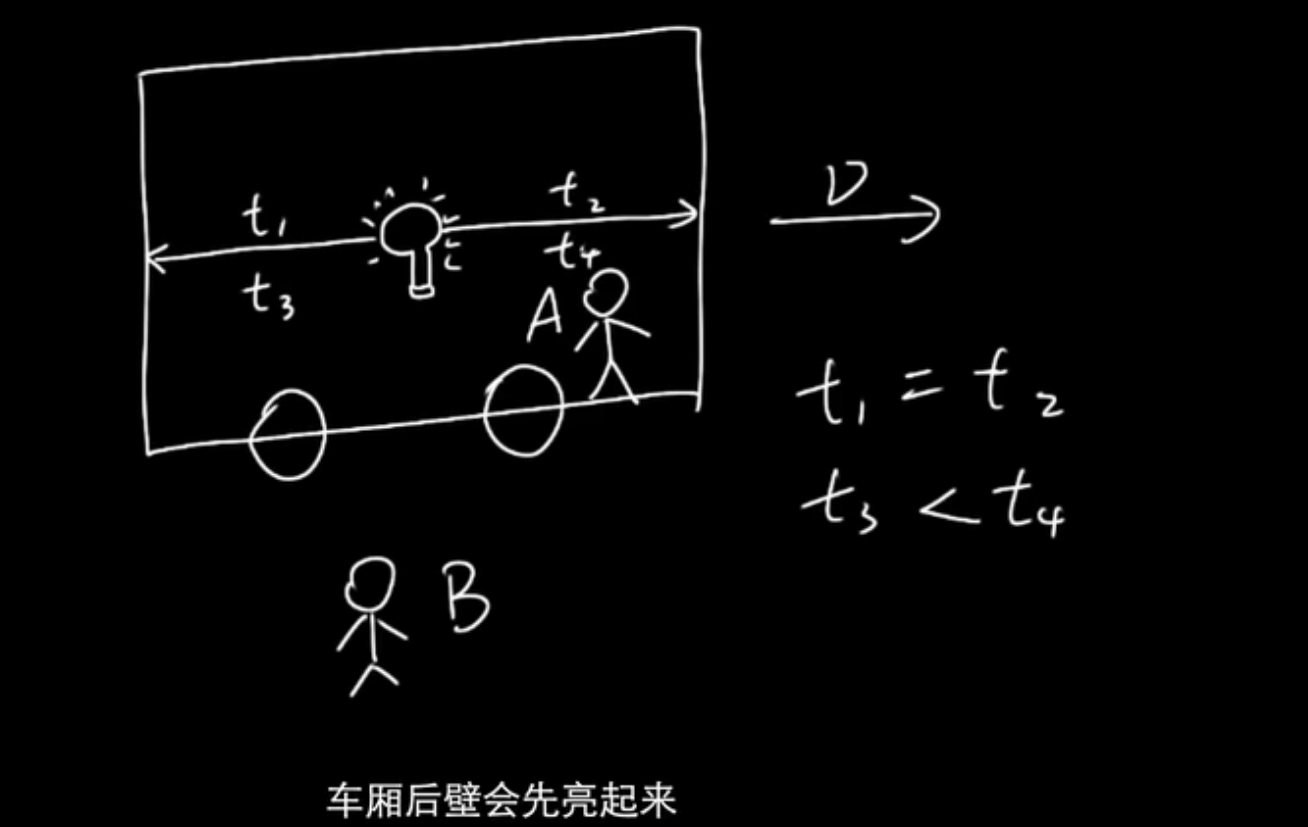 t₁
t₂
t₃
t₄
A
B
v
t₁ = t₂
t₃ < t₄
车厢后壁会先亮起来